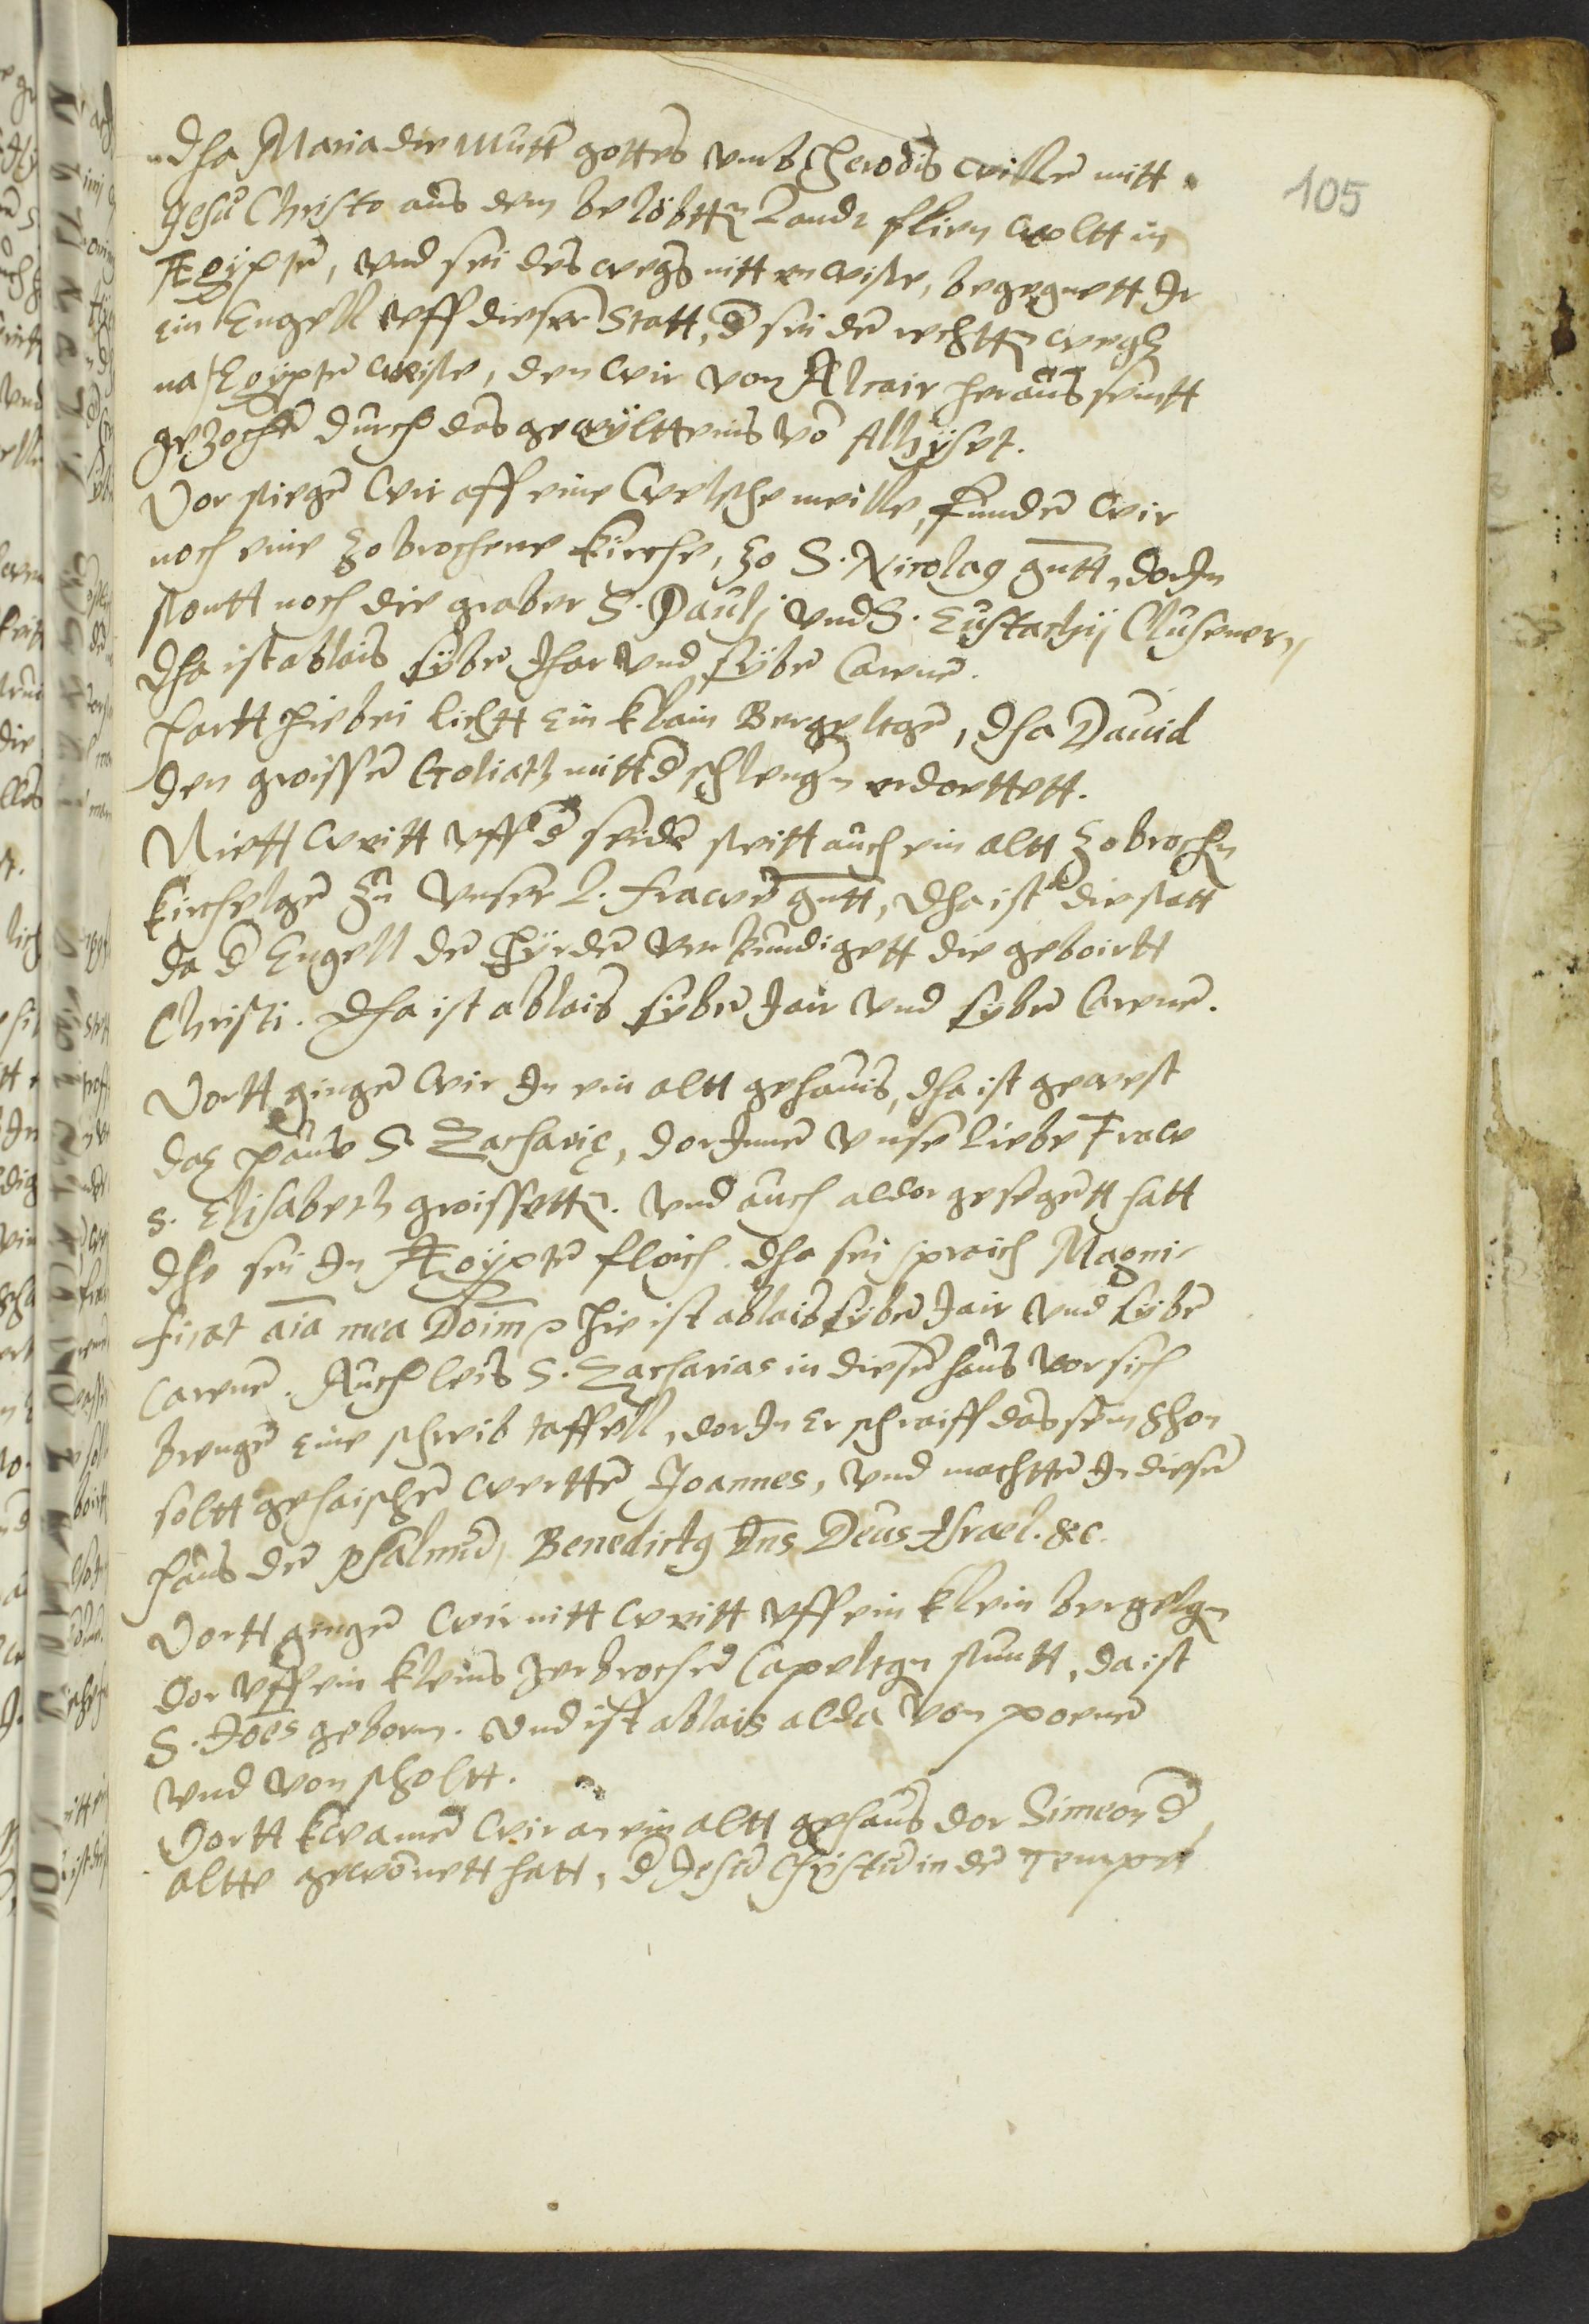 105
Dha Maria die Mutt̄ gottes vmb Herodis willē mitt
Jesu Christo aus dem belöbttn̄ Lande flien woltt in
Ægiptē, vnd sei des wegs nitt en wiste, begegnett Ir
ein Engell vff dieser Statt, d̄ sei dē rechttn̄ wegh
na Egyptē wiste, den wir von Alcair heraus seintt
gezochē durch das gewÿlttenis vō Alhyset.
Vor stiegē wir aff eine welsche meille, fundē wir
noch eine zobrochene kirche, zo S. Nicolaq gn̄tt, dorIn
stontt noch die graber S. Paulj vnd S. Eustachij Clusener,
Dha ist ablais sÿbē Ihar vnd sÿbē Carenē.
Hartt hiebei lichtt ein klain Bergeltgē, dha Dauid
den groissē Goliath mitt d̄ schlengen erdoettett.
Niett weitt vff d̄ seidē steitt auch ein altt zobrochn̄
kirchelgē zu vnser L. frawē gn̄tt, dha ist die statt
da d̄ Engell dē hÿrdē verkundigett die geboirtt
Christi. Dha ist ablais sÿbē Jair vnd sybē Carenē.
Vortt gingē wir In ein altt gehauis, dha ist gewest
das haus S. Zacharię, dorInnē vnse liebe Fraw
S. Elisabeth groissettn̄. vnd auch aldor gesegētt hatt
dhe sei In Ægÿptē floich. dha sei sprach Magni-
ficat aīa mea Doīm hie ist ablais sybē Jair vnd sÿbē
Carenē. Auch leis S. Zacharias in diesē haus vor sich
brengē eine schreib taffell, dorIn Er schreiff das sein shon
soltt gehaischē werttē Joannes, vnd machttē In diesē
haus dē psalmū, Benedictq Dn̄s Deus Israel. &c.
Vortt gingē wir nitt weitt vff ein klein bergelgn̄
dor vff ein kleins zerbrochē Capeltgn stuntt, da ist
S. Jōes geborn. vnd ist ablais alda von poenē
vnd von scholtt.
Vortt kwamē wir an ein altt gehaus dor Simeon d̄
altte gewōnett hatt, d̄ Jesū Christū in dē Tempel